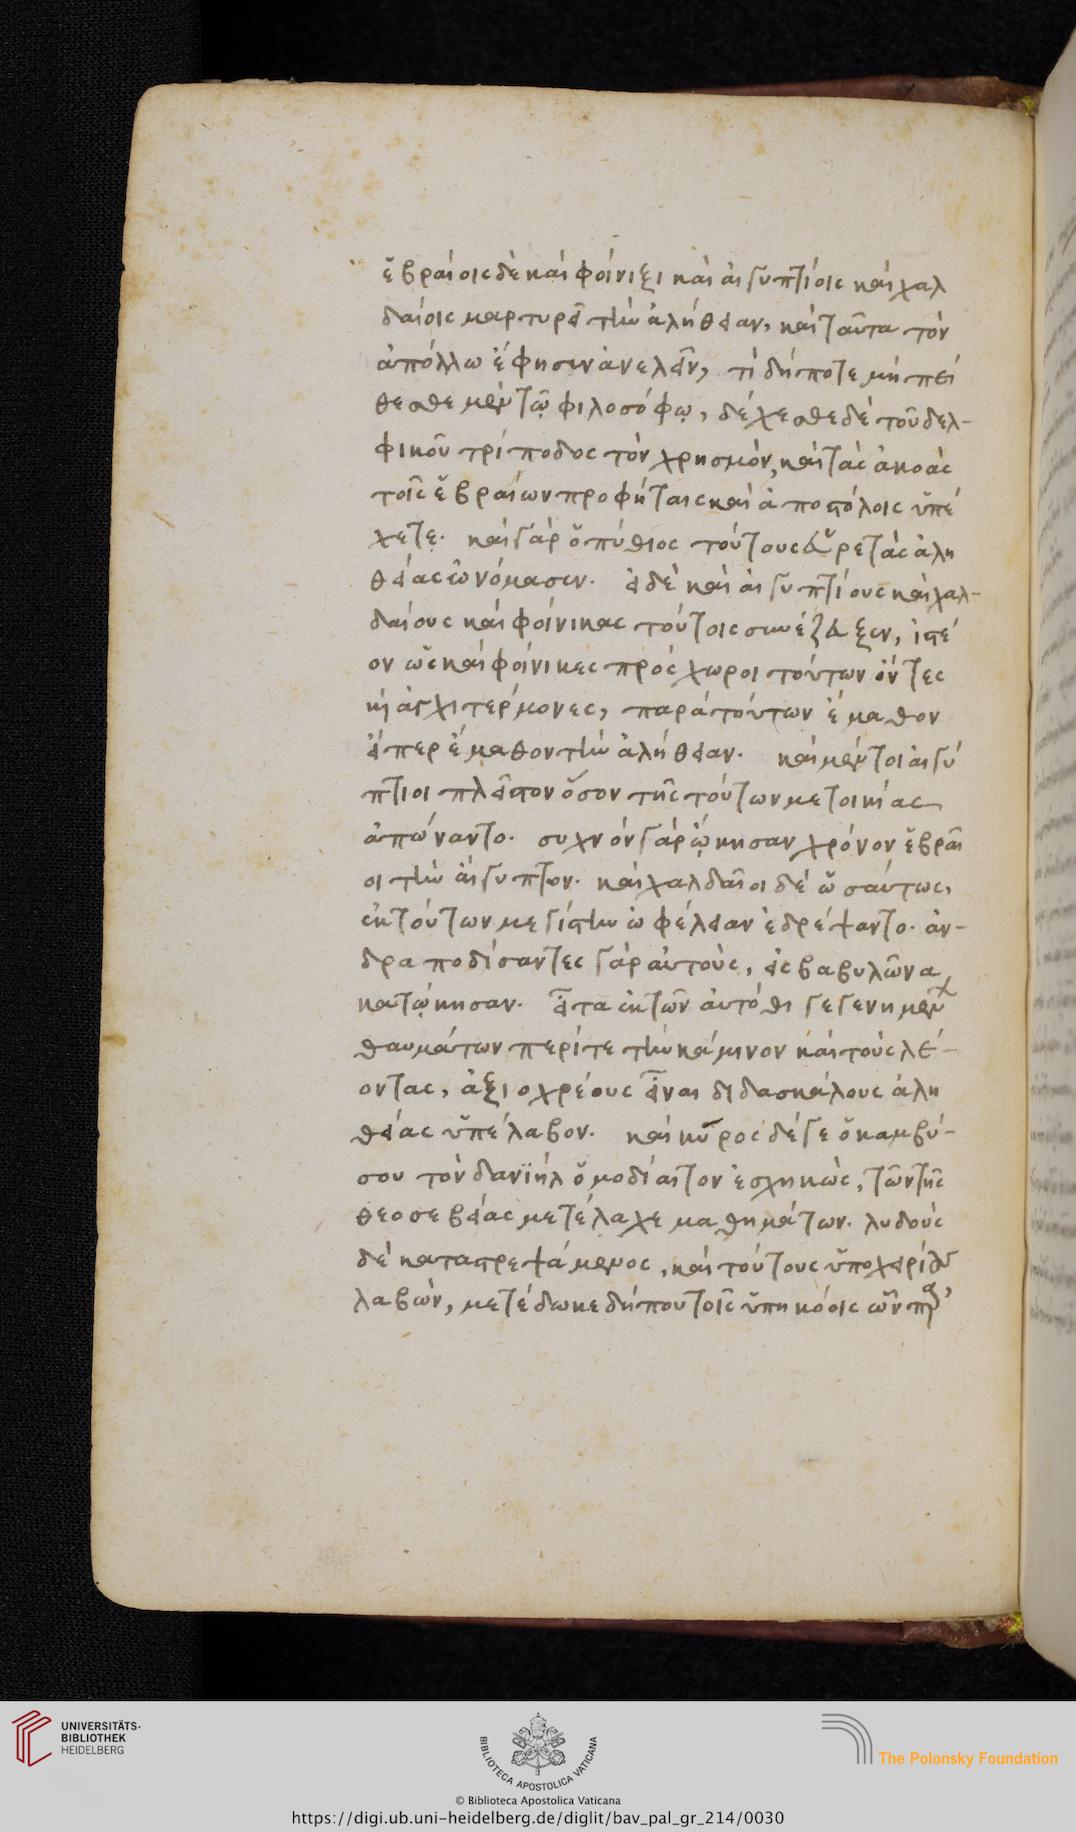 ἑβραίοις δὲ καὶ φοίνιξι καὶ αἰγυπτίοις καὶ χαλ
δαίοις μαρτυρεῖ τὴν ἀλήθειαν, καὶ ταῦτα τὸν
ἀπόλλω ἔφησεν ἀνελεῖν, τί δήποτε μὴ πεί
θεσθε μὲν τῷ φιλοσόφῳ, δέχεσθε δὲ τοῦ δελ-
φικοῦ τρίποδος τὸν χρησμόν, καὶ τὰς ἀκοὰς
τοῖς ἑβραίων προφήταις καὶ ἀποστόλοις ὑπέ
χετε. καὶ γὰρ ὁ πύθιος τούτους εὑρετὰς ἀλη
θείας ὠνόμασεν. εἰ δὲ καὶ αἰγυπτίους καὶ χαλ-
δαίους καὶ φοίνικας τούτοις συνέζευξεν, ἰστέ
ον ὡς καὶ φοίνικες πρόσχωροι τούτων ὄντες
κἠ ἀγχιτέρμονες, παρὰ τούτων ἔμαθον
εἴπερ ἔμαθον τὴν ἀλήθειαν. καὶ μέντοι αἰγύ
πτιοι πλεῖστον ὅσον τῆς τούτων μετοικίας
ἀπώναντο. συχνὸν γὰρ ᾤκησαν χρόνον ἑβραῖ
οι τὴν αἴγυπτον. καὶ χαλδαῖοι δὲ ὡσαύτως,
ἐκ τούτων μεγίστην ὠφέλειαν ἐδρέψαντο. ἀν-
δραποδίσαντες γὰρ αὐτοὺς, εἰς βαβυλῶνα
κατῴκησαν. εἶτα ἐκ τῶν αὐτόθι γεγενημέν
θαυμάτων περί τε τὴν κάμινον καὶ τοὺς λέ-
οντας, ἀξιοχρέους εἶναι διδασκάλους ἀλη
θείας ὑπέλαβον. καὶ κῦρος δέ γε ὁ καμβύ-
σου τὸν δανιὴλ ὁμοδίαιτον ἐσχηκὼς, τῶν τῆς
θεοσεβείας μετέλαχε μαθημάτων. λυδοὺς
δὲ καταστρεψάμενος, καὶ τούτους ὑποχειρίους
λαβὼν, μετέδωκε δήπου τοῖς ὑπηκόοις ὧν
UNIVERSITÄTS-
BIBLIOTHEK
HEIDELBERG
BIBLIOTECA APOSTOLICA VATICANA
The Polonsky Foundation
© Biblioteca Apostolica Vaticana
https://digi.ub.uni-heidelberg.de/diglit/bav_pal_gr_214/0030